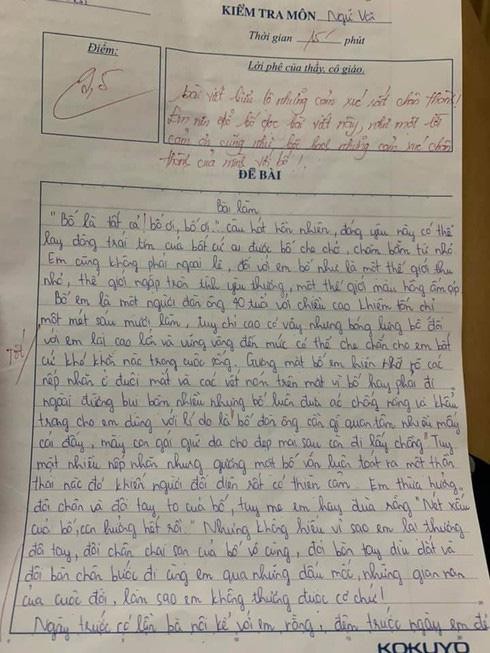 KIỂM TRA MÔN Ngữ Vă
Thời gian 15' phút
Điểm:
Lời phê của thầy, cô giáo.
9,5
bài viết biểu lộ những cảm xúc rất chân thành!
Em nên để bố đọc bài viết này, như một lời
cảm ơn cũng như bộc bạch những cảm xúc chân
thành của mình với bố!
ĐỀ BÀI
Bài làm
"Bố là tất cả! bố ơi, bố ơi.." câu hát hồn nhiên, đáng yêu này có thể
lay động trái tim của bất cứ ai được bố che chở, chăm bẵm từ nhỏ
Em cũng không phải ngoại lệ, đối với em bố như là một thế giới thu
nhỏ, thế giới ngập tràn tình yêu thương, một thế giới màu hồng ấm áp
Bố em là một người đàn ông 40 tuổi với chiều cao khiêm tốn chỉ
một mét sáu mươi lăm, tuy chỉ cao có vậy nhưng bóng lưng bố đối
với em lại cao lớn và vững vàng đến mức có thể che chắn cho em bất
Tốt
cứ khó khăn nào trong cuộc sống. Gương mặt bố em hiện rõ các
nếp nhăn ở đuôi mắt và các vết nám trên mặt vì bố hay phải đi
ngoài đường bụi bặm nhiều nhưng bố luôn đưa áo chống nắng và khẩu
trang cho em dùng với lí do là "bố đàn ông cần gì quan tâm nhiều mấy
cái đấy, mày con gái giữ da cho đẹp mai sau còn đi lấy chồng" Tuy
mặt nhiều nếp nhăn nhưng gương mặt bố vẫn luôn toát ra một thần
thái nào đó khiến người đối diện rất có thiện cảm. Em thừa hưởng
đôi chân và đôi tay to của bố, tuy mẹ em hay đùa rằng "Nét xấu
của bố, con hưởng hết rồi." Nhưng không hiểu vì sao em lại thương
đôi tay, đôi chân chai sạn của bố vô cùng, đôi bàn tay dìu dắt và
đôi bàn chân bước đi cùng em qua những dấu mốc, những gian nan
của cuộc đời, làm sao em không thương được cơ chứ!
Ngày trước có lần bà nội kể với em rằng, đêm trước ngày em đẻ
KOKUYO